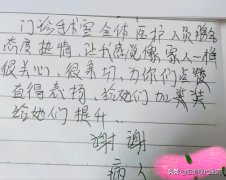 门诊手术室全体医护人员服务
态度热情，让我感觉像家人一样
很关心，很亲切，为你们点赞
值得表扬，给她们加奖奖
给她们提升。
谢谢
病人